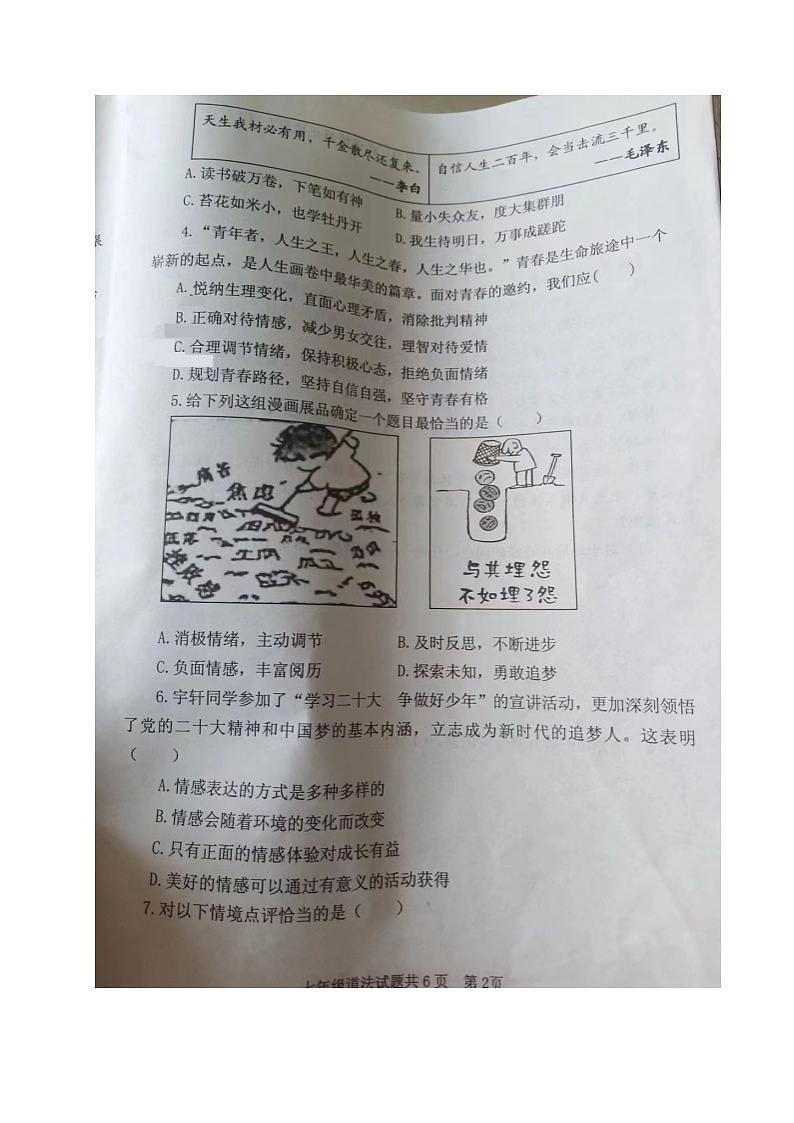 天生我材必有用，千金散尽还复来。
——李白
自信人生二百年，会当击流三千里。
——毛泽东
A.读书破万卷，下笔如有神
B.量小失众友，度大集群朋
C.苔花如米小，也学牡丹开
D.我生待明日，万事成蹉跎
4.“青年者，人生之王，人生之春，人生之华也。”青春是生命旅途中一个
崭新的起点，是人生画卷中最华美的篇章。面对青春的邀约，我们应(　　)
A.悦纳生理变化，直面心理矛盾，消除批判精神
B.正确对待情感，减少男女交往，理智对待爱情
C.合理调节情绪，保持积极心态，拒绝负面情绪
D.规划青春路径，坚持自信自强，坚守青春有格
5.给下列这组漫画展品确定一个题目最恰当的是（　　）
痛苦
焦虑
挫败感
与其埋怨
不如埋了怨
A.消极情绪，主动调节
B.及时反思，不断进步
C.负面情感，丰富阅历
D.探索未知，勇敢追梦
6.宇轩同学参加了“学习二十大　争做好少年”的宣讲活动，更加深刻领悟
了党的二十大精神和中国梦的基本内涵，立志成为新时代的追梦人。这表明
（　　）
A.情感表达的方式是多种多样的
B.情感会随着环境的变化而改变
C.只有正面的情感体验对成长有益
D.美好的情感可以通过有意义的活动获得
7.对以下情境点评恰当的是（　　）
七年级道法试题共6页　第2页